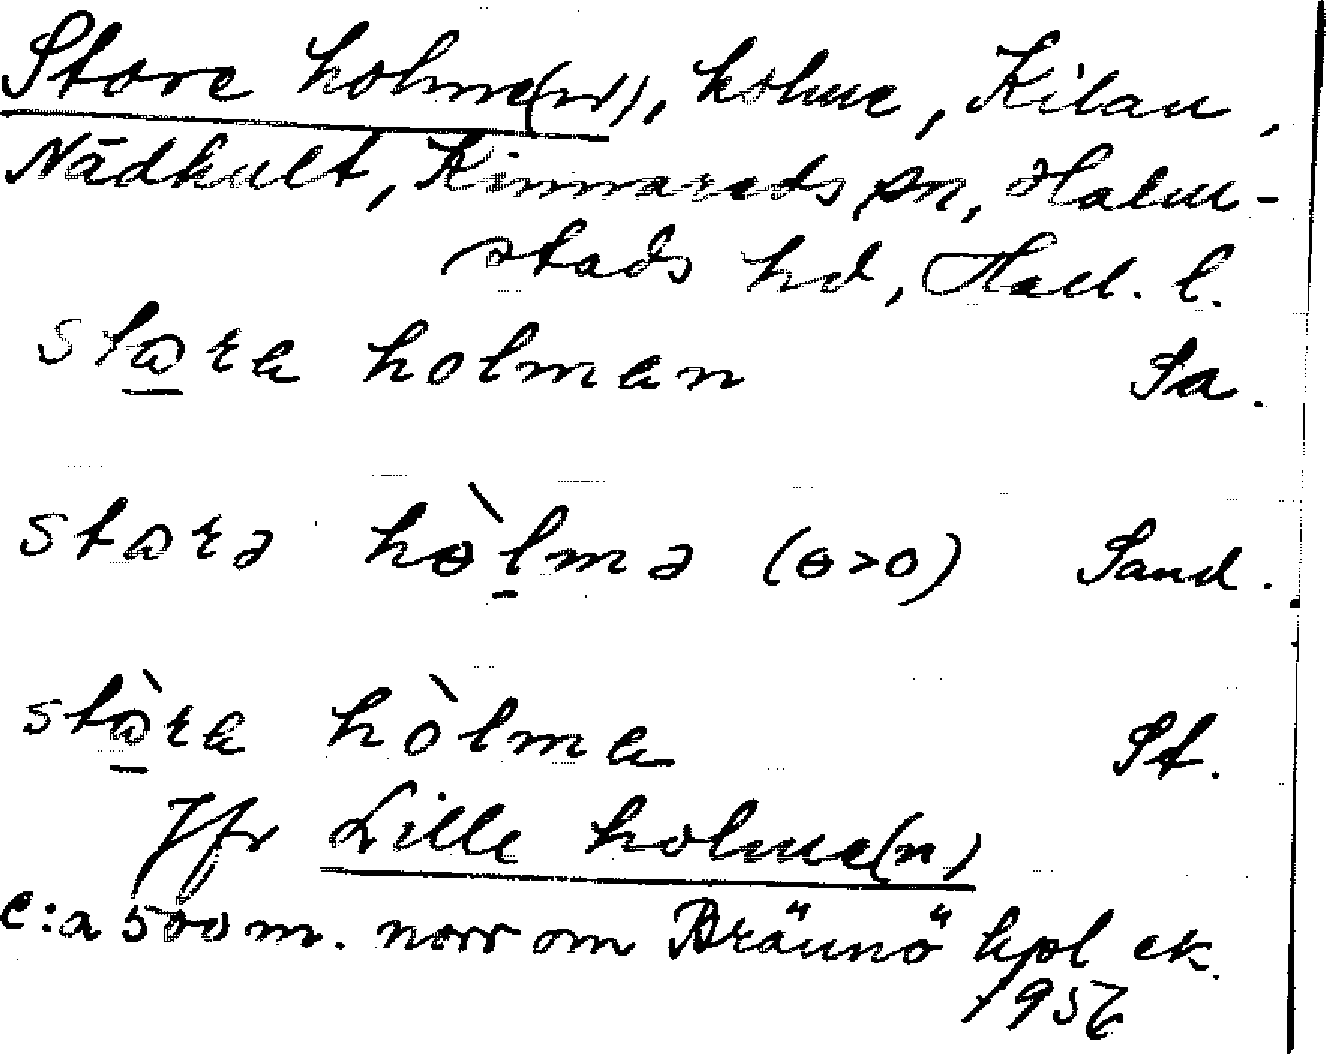 Store holme(n), holme, Kilan,
Nädhult, Kinnareds sn, Halm-
stads hd, Hall. l.
stɷra holman Sa.
stɷrə hɵ̀lmə (ɵ>o) Sand.
stɷ̀ra hòlma St.
Jfr Lille holme(n)
c:a 500 m. norr om Brännö hpl ek.
1956